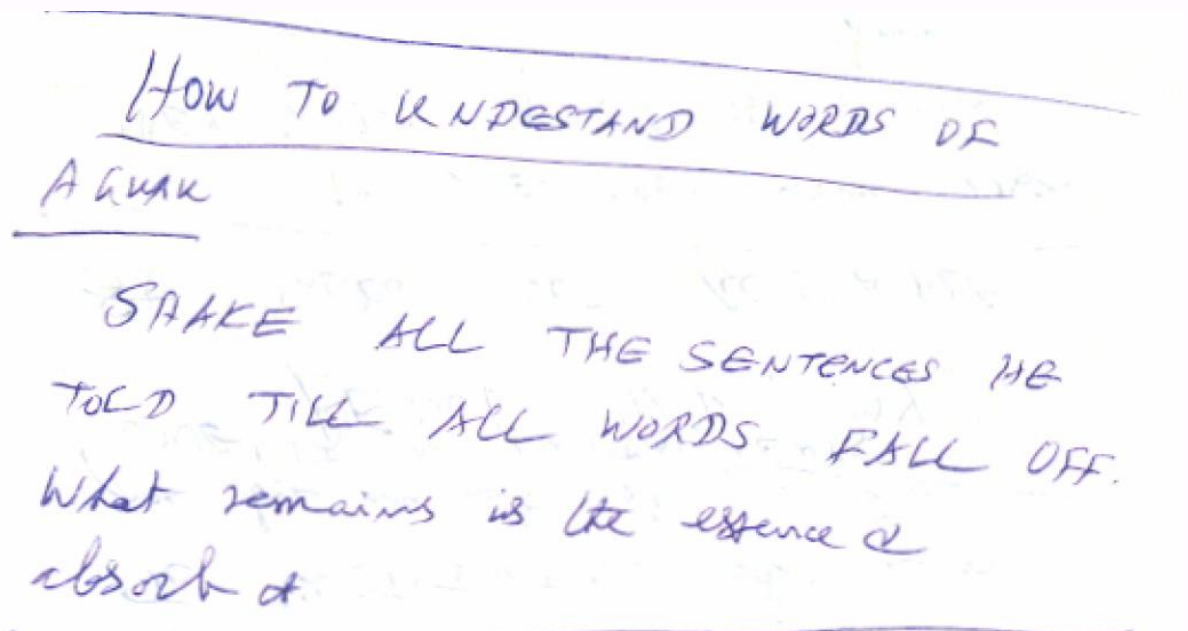 HOW TO UNDESTAND WORDS OF
A GURU
SHAKE ALL THE SENTENCES HE
TOLD TILL ALL WORDS FALL OFF.
What remains is the essence &
absorb it